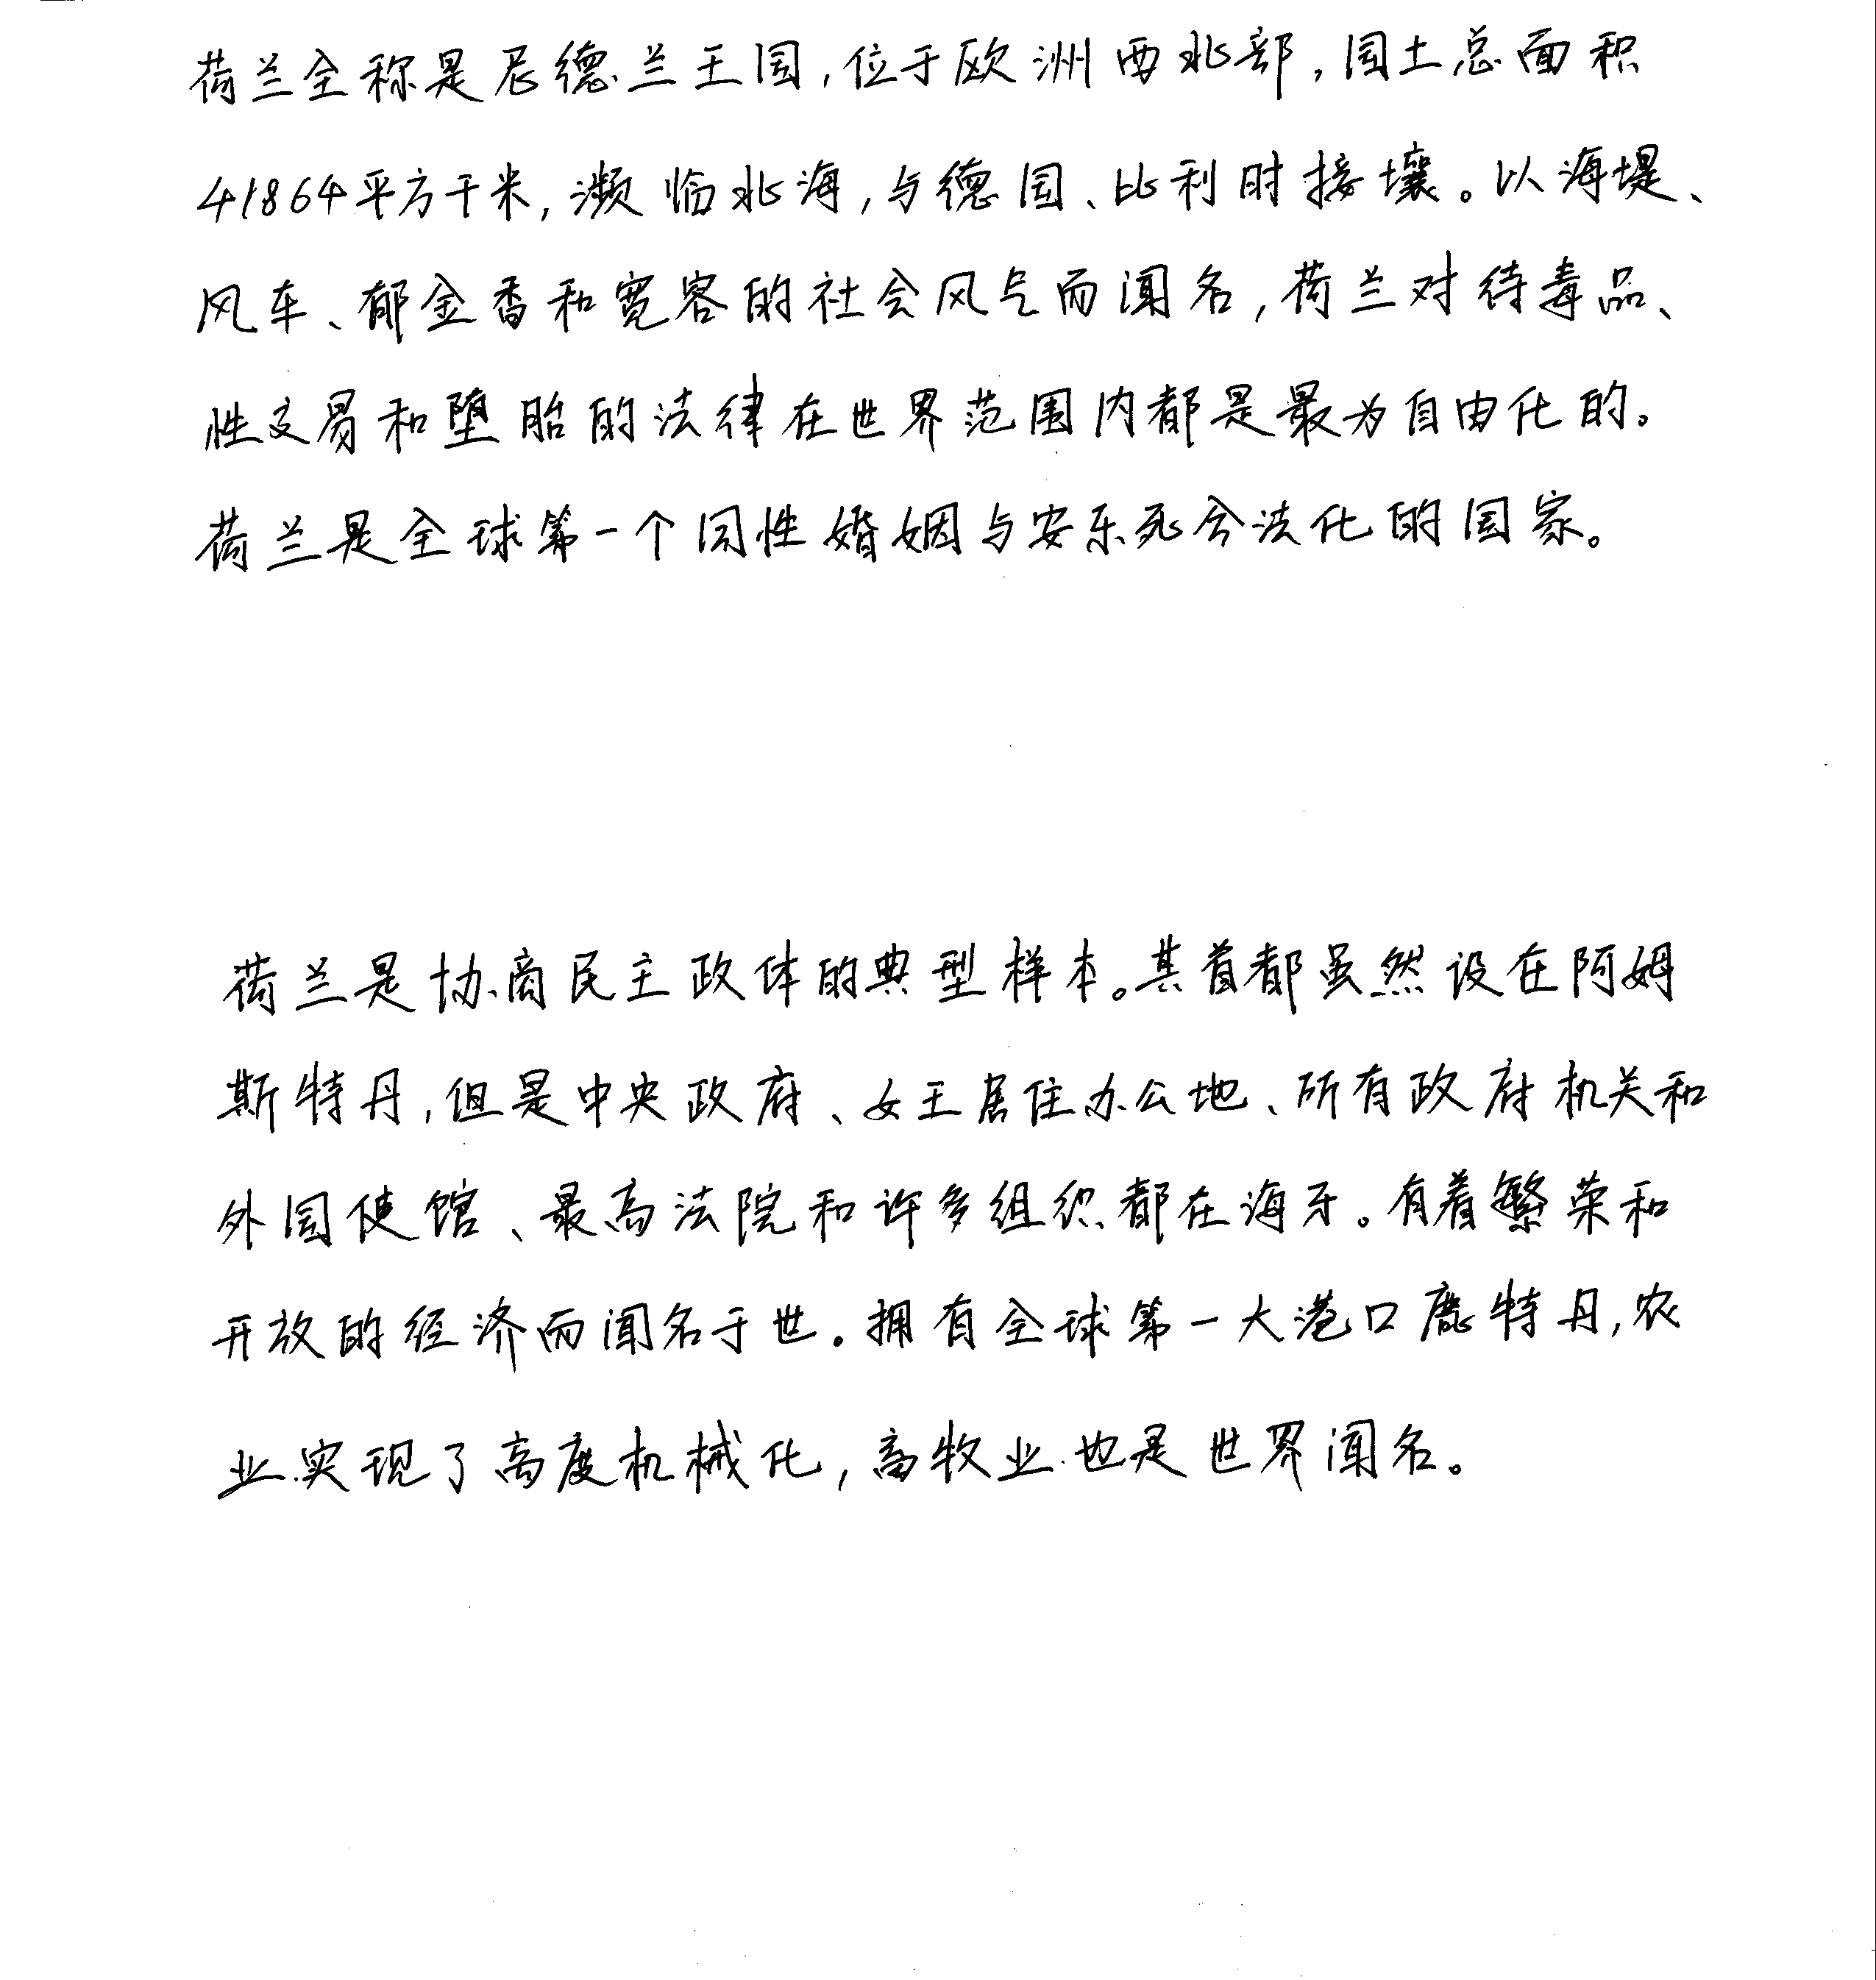 荷兰全称是尼德兰王国,位于欧洲西北部,国土总面积
41864平方千米,濒临北海,与德国、比利时接壤。以海堤、
风车、郁金香和宽容的社会风气而闻名,荷兰对待毒品、
性交易和堕胎的法律在世界范围内都是最为自由化的。
荷兰是全球第一个同性婚姻与安乐死合法化的国家。
荷兰是协商民主政体的典型样本。其首都虽然设在阿姆
斯特丹,但是中央政府、女王居住办公地、所有政府机关和
外国使馆、最高法院和许多组织都在海牙。有着繁荣和
开放的经济而闻名于世。拥有全球第一大港口鹿特丹,农
业实现了高度机械化,畜牧业也是世界闻名。